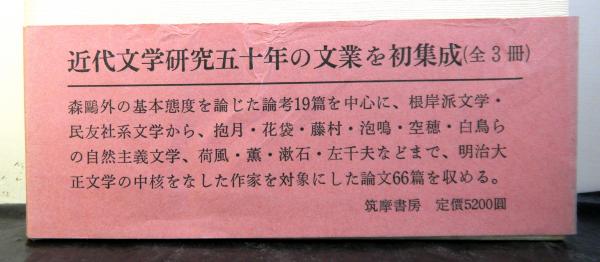 近代文学研究五十年の文業を初集成(全3冊)
森鷗外の基本態度を論じた論考19篇を中心に、根岸派文学・
民友社系文学から、抱月・花袋・藤村・泡鳴・空穂・白鳥ら
の自然主義文学、荷風・薫・漱石・左千夫などまで、明治大
正文学の中核をなした作家を対象にした論文66篇を収める。
筑摩書房 定價5200圓